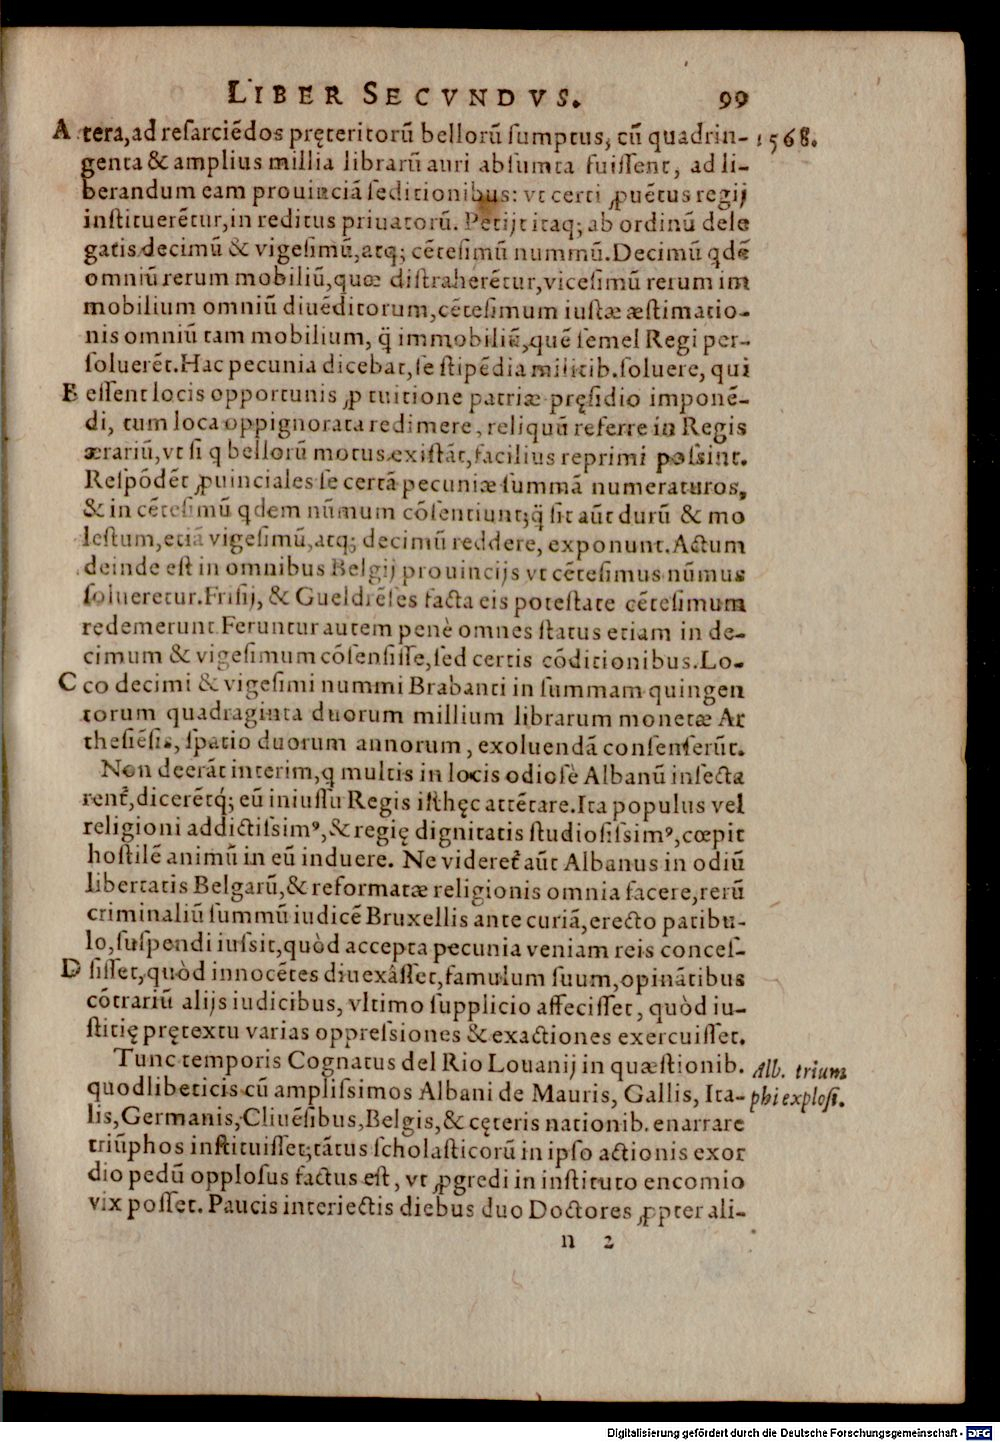 LIBER SECVNDVS. 99
A tera, ad reſarciẽdos pręteritorũ bellorũ ſumptus, cũ quadrin- 1568.
genta & amplius millia librarũ auri abſumta fuiſſent, ad li-
berandum eam prouinciã ſeditionibus: vt certi ꝓuẽtus regij
inſtituerẽtur, in reditus priuatorũ. Petijt itaq; ab ordinũ dele
gatis decimũ & vigeſimũ, atq; cẽteſimũ nummũ. Decimũ qdẽ
omniũ rerum mobiliũ, quæ diſtraherẽtur, viceſimũ rerum im
mobilium omniũ diuẽditorum, cẽteſimum iuſtæ æſtimatio-
nis omniũ tam mobilium, q̃ immobiliũ, quẽ ſemel Regi per-
ſoluerẽt. Hac pecunia dicebat, ſe ſtipẽdia militib. ſoluere, qui
B eſſent locis opportunis ꝓ tuitione patriæ pręſidio imponẽ-
di, tum loca oppignorata redimere, reliquũ referre in Regis
ærariũ, vt ſi q bellorũ motus exiſtãt, facilius reprimi poſsint.
Reſpõdẽt ꝓuinciales ſe certã pecuniæ ſummã numeraturos,
& in cẽteſimũ qdem nũmum cõſentiunt; q̃ ſit aũt durũ & mo
leſtum, etiã vigeſimũ, atq; decimũ reddere, exponunt. Actum
deinde eſt in omnibus Belgij prouincijs vt cẽteſimus nũmus
ſolueretur. Friſij, & Gueldrẽſes facta eis poteſtate cẽteſimum
redemerunt. Feruntur autem penè omnes ſtatus etiam in de-
cimum & vigeſimum cõſenſiſſe, ſed certis cõditionibus. Lo-
C co decimi & vigeſimi nummi Brabanti in ſummam quingen
torum quadraginta duorum millium librarum monetæ Ar
theſiẽſis, ſpatio duorum annorum, exoluendã conſenſerũt.
Non deerãt interim, q multis in locis odioſè Albanũ inſecta
rent᷑, dicerẽtq́; eũ iniuſſu Regis iſthęc attẽtare. Ita populus vel
religioni addictiſsimꝰ, & regię dignitatis ſtudioſiſsimꝰ, cœpit
hoſtilẽ animũ in eũ induere. Ne videret᷑ aũt Albanus in odiũ
libertatis Belgarũ, & reformatæ religionis omnia facere, rerũ
criminaliũ ſummũ iudicẽ Bruxellis ante curiã, erecto patibu-
lo, ſuſpendi iuſsit, quòd accepta pecunia veniam reis conceſ-
D ſiſſet, quòd innocẽtes diuexâſſet, famulum ſuum, opinãtibus
cõtrariũ alijs iudicibus, vltimo ſupplicio affeciſſet, quòd iu-
ſtitię prętextu varias oppreſsiones & exactiones exercuiſſet.
Tunc temporis Cognatus del Rio Louanij in quæſtionib. Alb. trium
quodlibeticis cũ ampliſsimos Albani de Mauris, Gallis, Ita- phi exploſi.
lis, Germanis, Cliuẽſibus, Belgis, & cęteris nationib. enarrare
triũphos inſtituiſſet; tãtus ſcholaſticorũ in ipſo actionis exor
dio pedũ opploſus factus eſt, vt ꝓgredi in inſtituto encomio
vix poſſet. Paucis interiectis diebus duo Doctores ꝓpter ali-
n 2
Digitalisierung gefördert durch die Deutsche Forschungsgemeinschaft - DFG